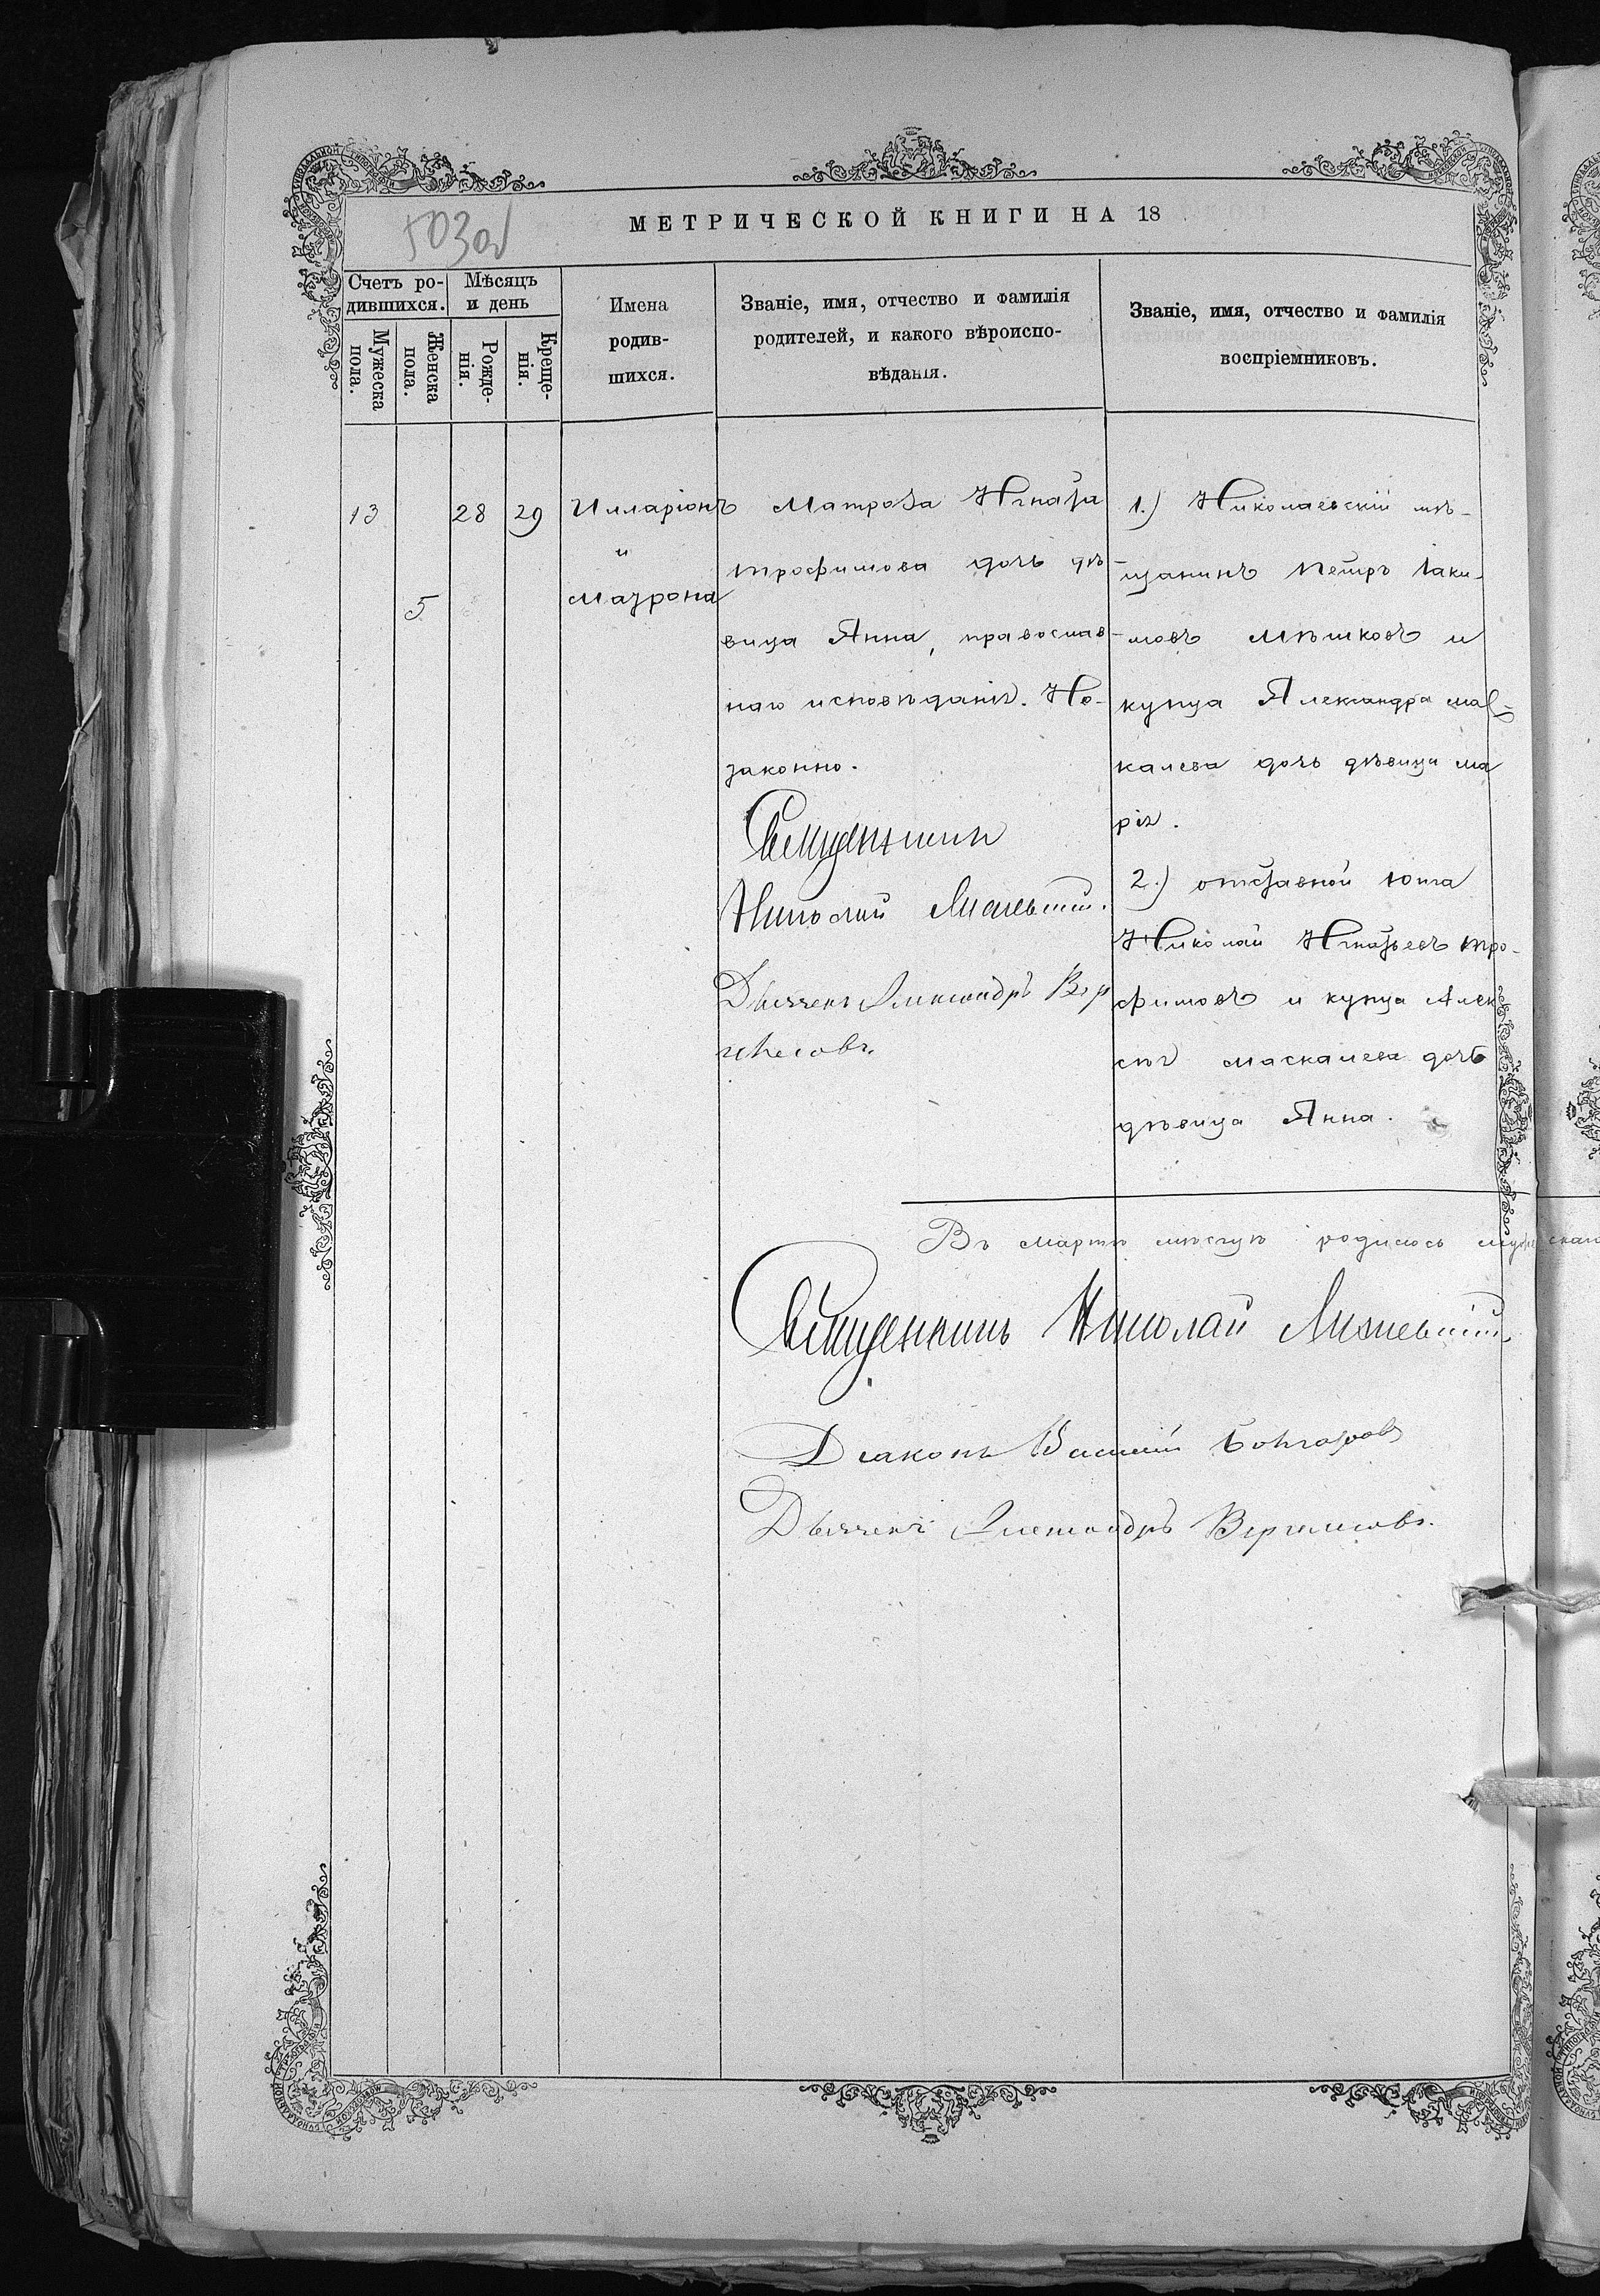 503об
МЕТРИЧЕСКОЙ КНИГИ НА 18
Счетъ ро-
дившихся.
Мѣсяцъ
и день
Мужеска
пола.
Женска
пола.
Рожде-
нія.
Креще-
нія.
Имена
родив-
шихся.
Званіе, имя, отчество и фамилія
родителей, и какого вѣроиспо-
вѣданія.
Званіе, имя, отчество и фамилія
воспріемниковъ.
13
5
28
29
Илларіонъ
и
Матрона
Матроза Игнатія
Трофимова дочь дѣ
вица Анна, православ
наго исповѣданія. Не-
законно.
Священникъ
Николай
Дьячекъ Александръ
1.) Николаевскій мѣ-
щанинъ Петръ Іаки-
мовъ Мѣшковъ и
купца Александра Мас-
калева дочь дѣвица Ма
рія.
2.) отставной юнга
Николай Игнатьевъ Тро-
фимовъ и купца Алек
сѣя Маскалева дочь
дѣвица Анна.
Въ мартѣ мѣсяцѣ родилось мужескаго
Священникъ Николай
Діаконъ Василій
Дьячекъ Александръ